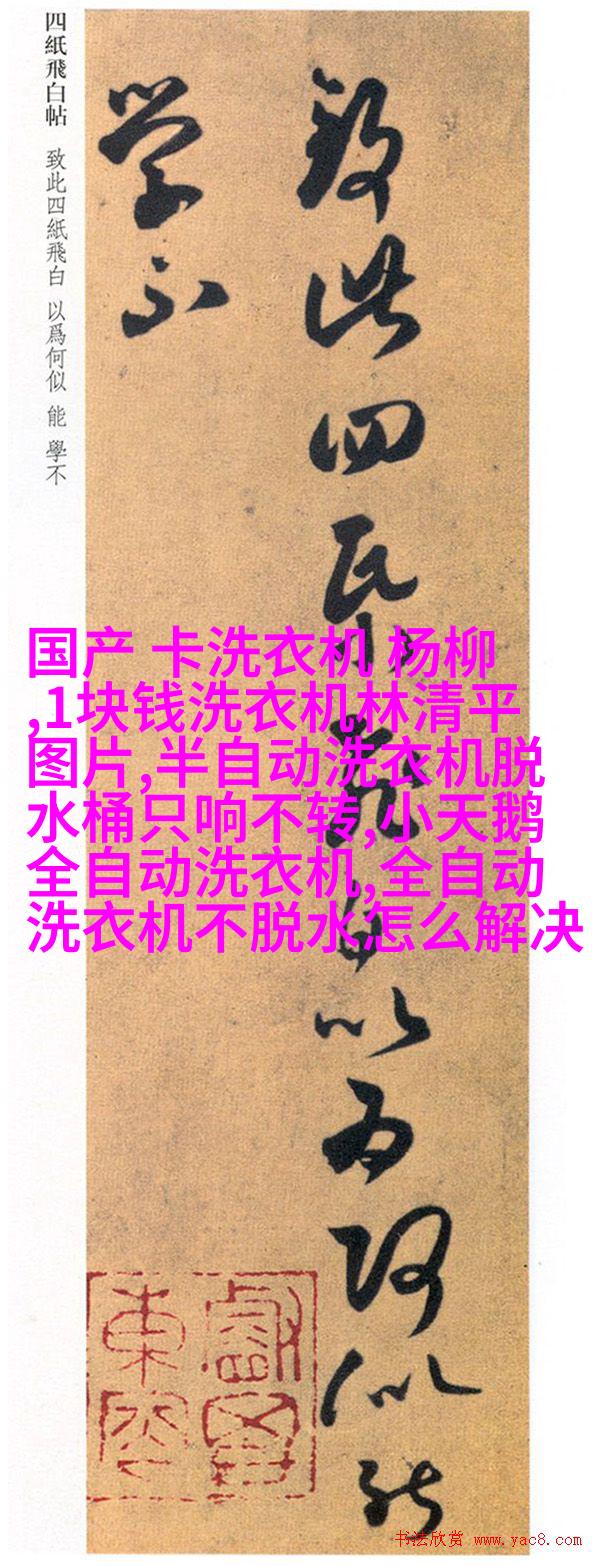 四紙飛白帖 致此四紙飛白 以爲何似 能 學不
致此四紙飛白以为何似能
学不
国产 卡洗衣机 杨柳
,1块钱洗衣机林清平
图片,半自动洗衣机脱
水桶只响不转,小天鹅
全自动洗衣机,全自动
洗衣机不脱水怎么解决
书法欣赏 www.yac8.com